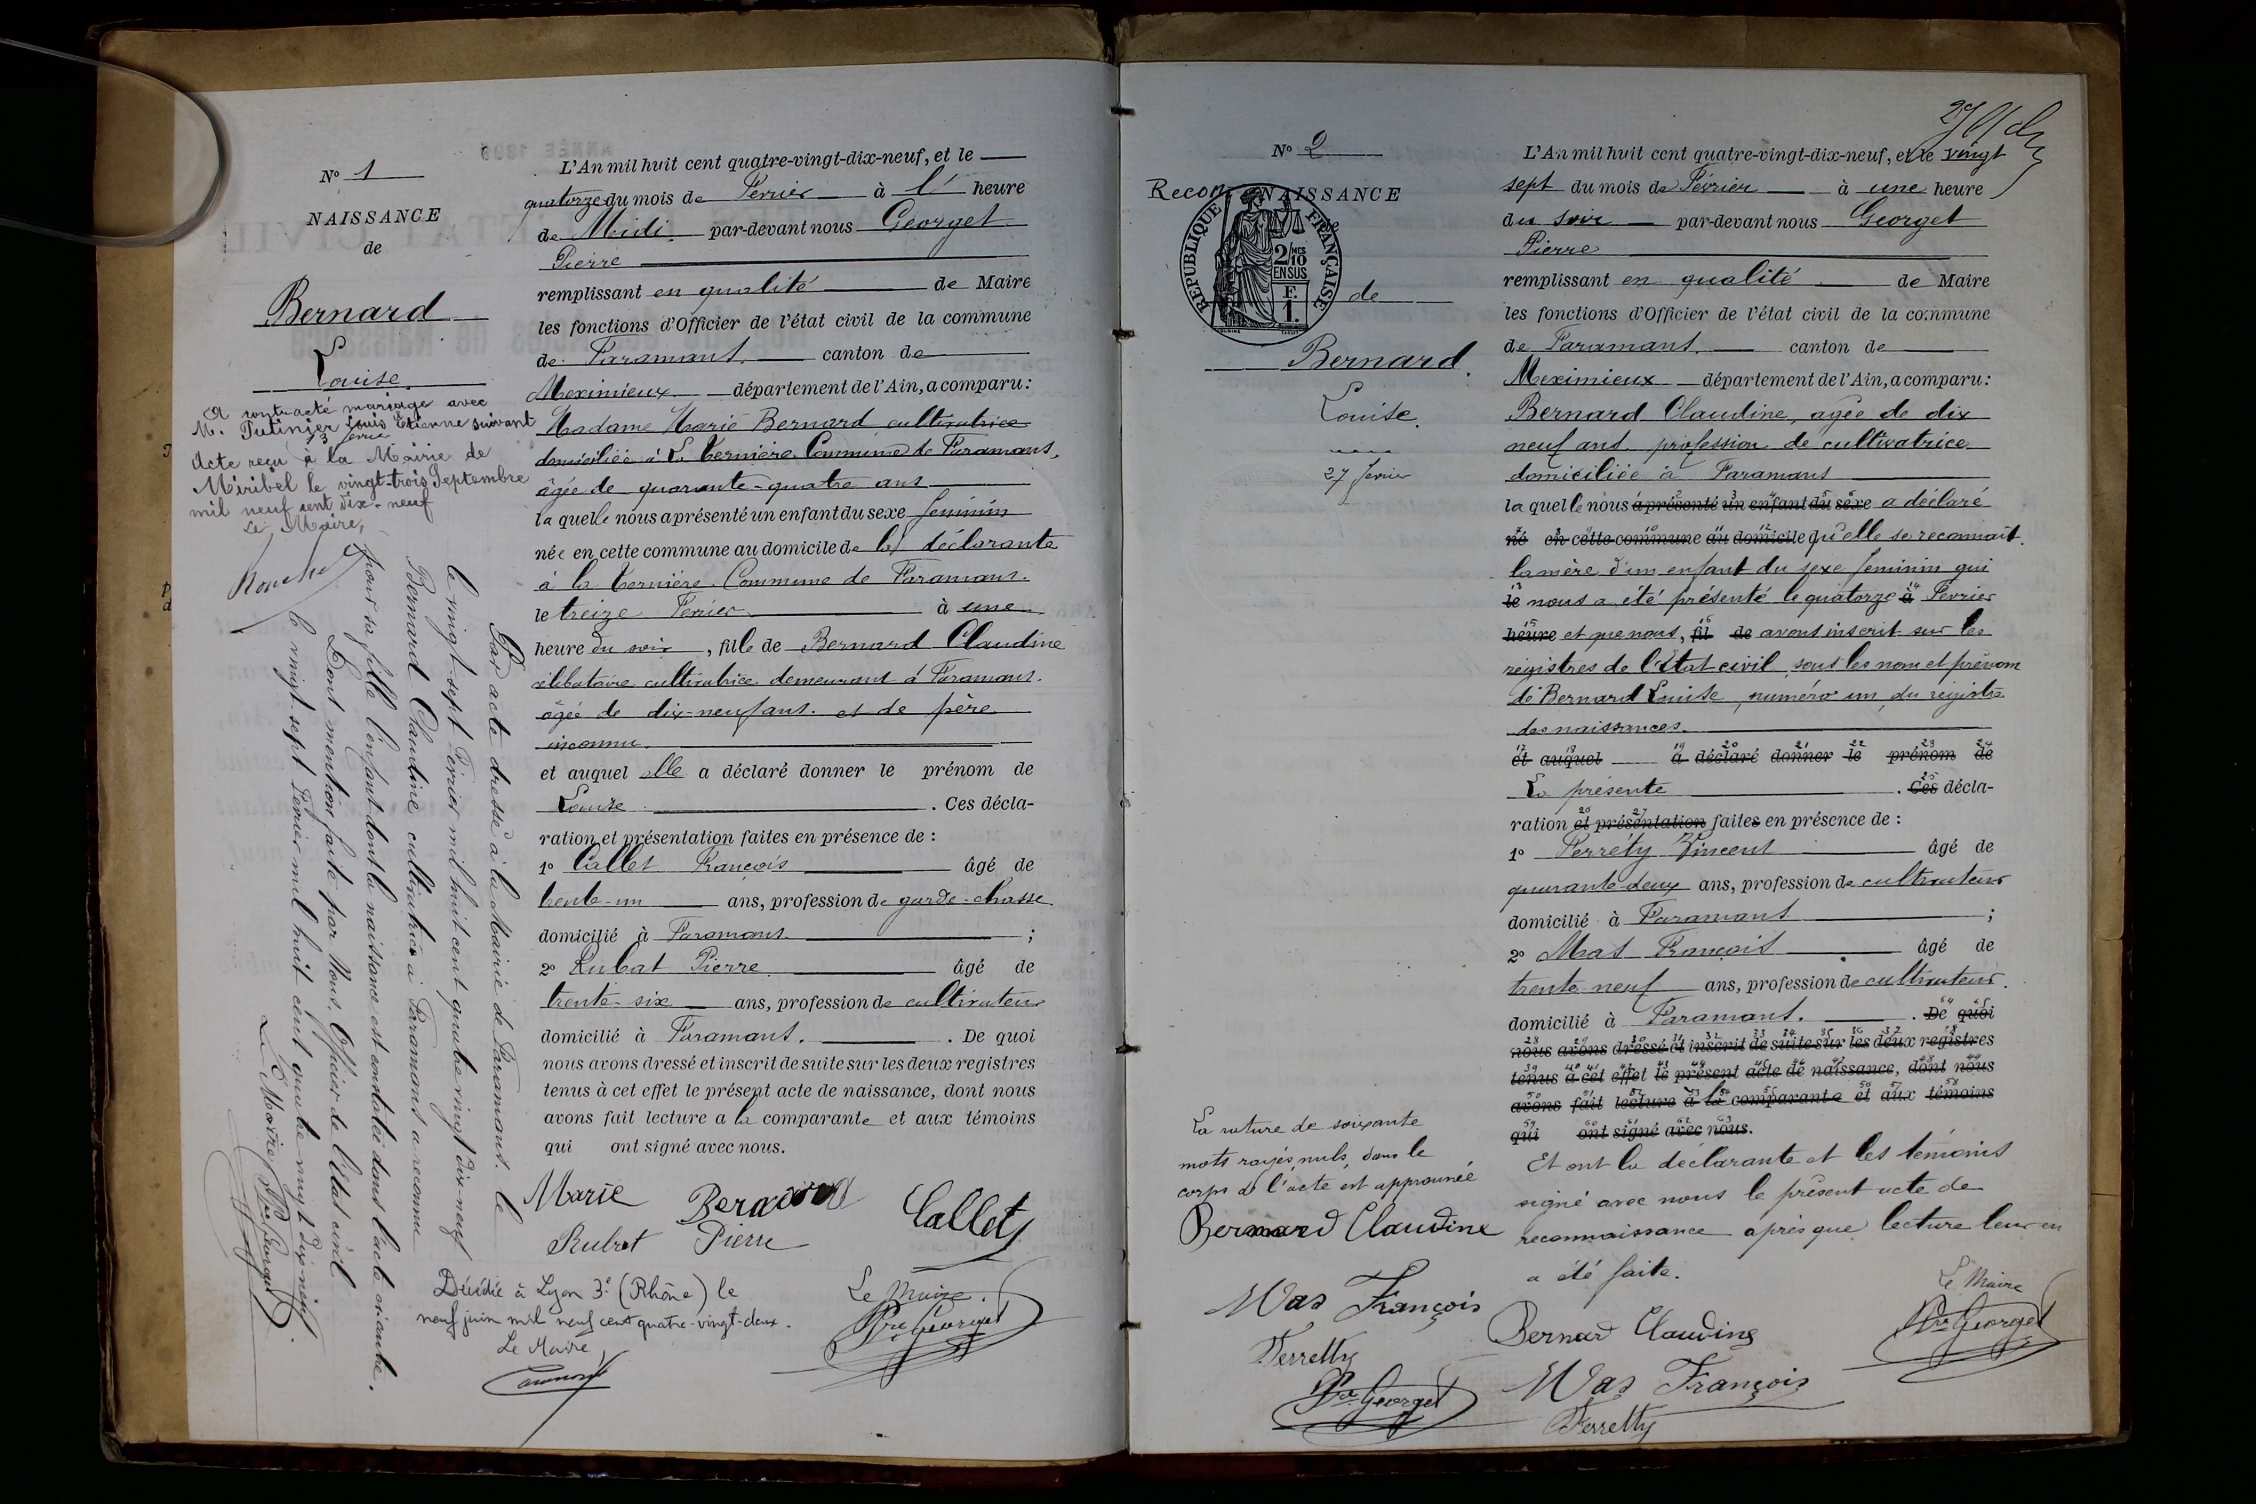 N° 1
NAISSANCE
de
Bernard
Louise
A contracté mariage avec
M. Putinier Louis Etienne suivant
13 févrie
Acte reçu à la Mairie de
Miribel le vingt-trois Septembre
mil neuf cent dix-neuf
Le Maire,
L'An mil huit cent quatre-vingt-dix-neuf, et le
quatorze du mois de Fevrier à l' heure
de Midi par-devant nous Georget
Pierre
remplissant en qualité de Maire
les fonctions d'Officier de l'état civil de la commune
de Faramans canton de
Meximieux département de l'Ain, a comparu :
Madame Marie Bernard cultivatrice
domiciliée à La Vernière Commune de Faramans,
âgée de quarante-quatre ans
la quelle nous a présenté un enfant du sexe feminin
née en cette commune au domicile de la déclarante
à la Vernière Commune de Faramans.
le treize Fevrier à une
heure du soir, fille de Bernard Claudine
célibataire cultivatrice demeurant à Faramans.
âgée de dix-neuf ans. et de père
inconnu.
et auquel elle a déclaré donner le prénom de
Louise. Ces décla-
ration et présentation faites en présence de :
1° Callet François âgé de
trente-un ans, profession de garde-chasse
domicilié à Faramans ;
2° Rubat Pierre âgé de
trente-six ans, profession de cultivateur
domicilié à Faramans. De quoi
nous avons dressé et inscrit de suite sur les deux registres
tenus à cet effet le présent acte de naissance, dont nous
avons fait lecture a la comparante et aux témoins
qui ont signé avec nous.
Marie Bernard Callet
Rubat Pierre
Le Maire.
Pre Georget
Par acte dressé à la Mairie de Faramans. le
le vingt-sept Fevrier mil huit cent quatre vingt dix-neuf
Bernard Claudine cultivatrice à Faramans a reconnu
pour sa fille l'enfant dont la naissance est constatée dans l'acte ci-contre.
Dont mention faite par Nous, Officier de l'état civil
le vingt-sept Fevrier mil huit cent quatre-vingt dix-neuf.
Le Maire
Pre Georget
Décédée à Lyon 3e (Rhône) le
neuf juin mil neuf cent quatre-vingt-deux.
Le Maire,
N° 2
Recon NAISSANCE
RÉPUBLIQUE FRANÇAISE
2/10 MES
EN SUS
F.
1.
de
Bernard.
Louise.
27 fevrier
L'An mil huit cent quatre-vingt-dix-neuf, et le vingt
sept du mois de Février à une heure
du soir par-devant nous Georget
Pierre
remplissant en qualité de Maire
les fonctions d'Officier de l'état civil de la commune
de Faramans. canton de
Meximieux département de l'Ain, a comparu :
Bernard Claudine, agée de dix
neuf ans profession de cultivatrice
domiciliée à Faramans
la quelle nous a présenté un enfant du sexe a déclaré
né en cette commune au domicile qu'elle se reconnait
la mère d'un enfant du sexe feminin qui
le nous a été présenté le quatorze à Fevrier
heure et que nous, fil de avons inscrit sur les
registres de l'état civil sous les nom et prénom
de Bernard Louise, numéro un, du registre
des naissances.
et auquel a déclaré donner le prénom de
La présente . Ces décla-
ration et présentation faites en présence de :
1° Ferréty Vincent âgé de
quarante-deux ans, profession de cultivateur
domicilié à Faramans ;
2° Mas François âgé de
trente neuf ans, profession de cultivateur.
domicilié à Faramans. De quoi
nous avons dressé et inscrit de suite sur les deux registres
tenus à cet effet le présent acte de naissance, dont nous
avons fait lecture à la comparante et aux témoins
qui ont signé avec nous.
Et ont la déclarante et les témoins
signé avec nous le présent acte de
reconnaissance après que lecture leur en
a été faite.
Le Maire
Pre Georget
Bernard Claudine
Mas François
Ferretty
La rature de soixante
mots rayés nuls dans le
corps de l'acte est approuvée
Bernard Claudine
Mas François
Ferretty
Pre Georget